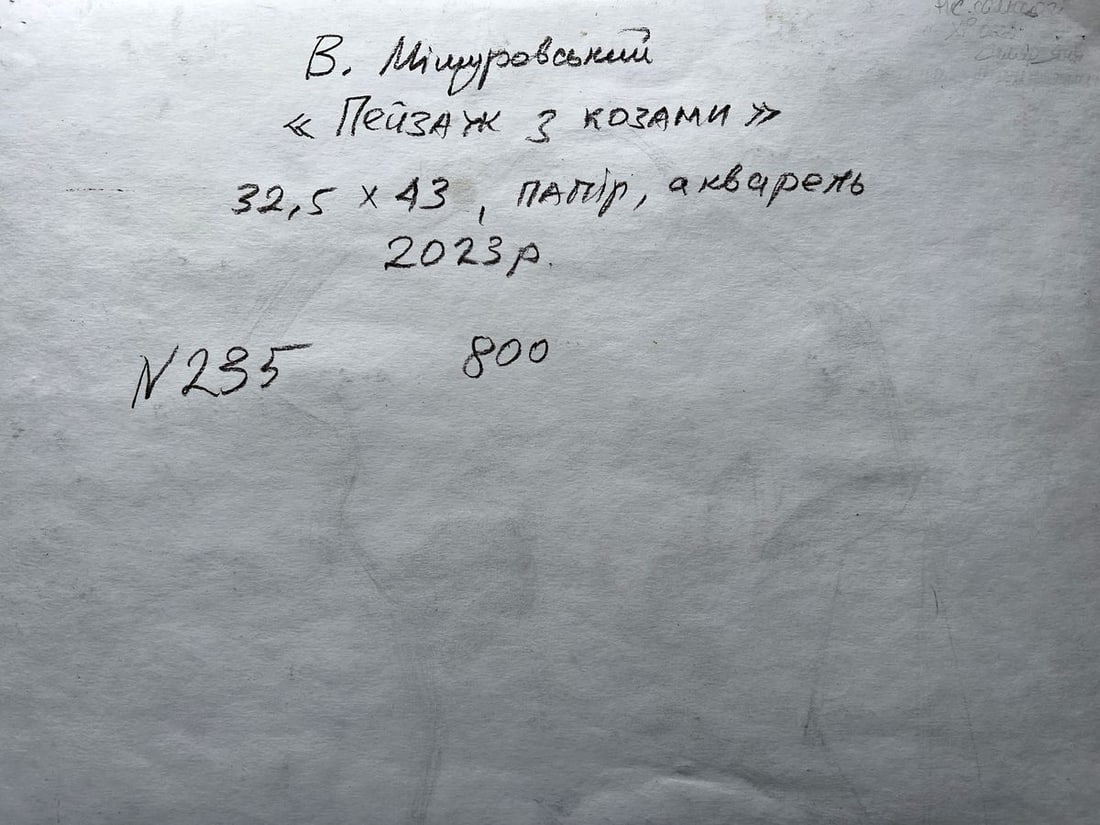 В. Мішуровський
« Пейзаж з козами »
32,5 х 43, папір, акварель
2023р.
N 235 800